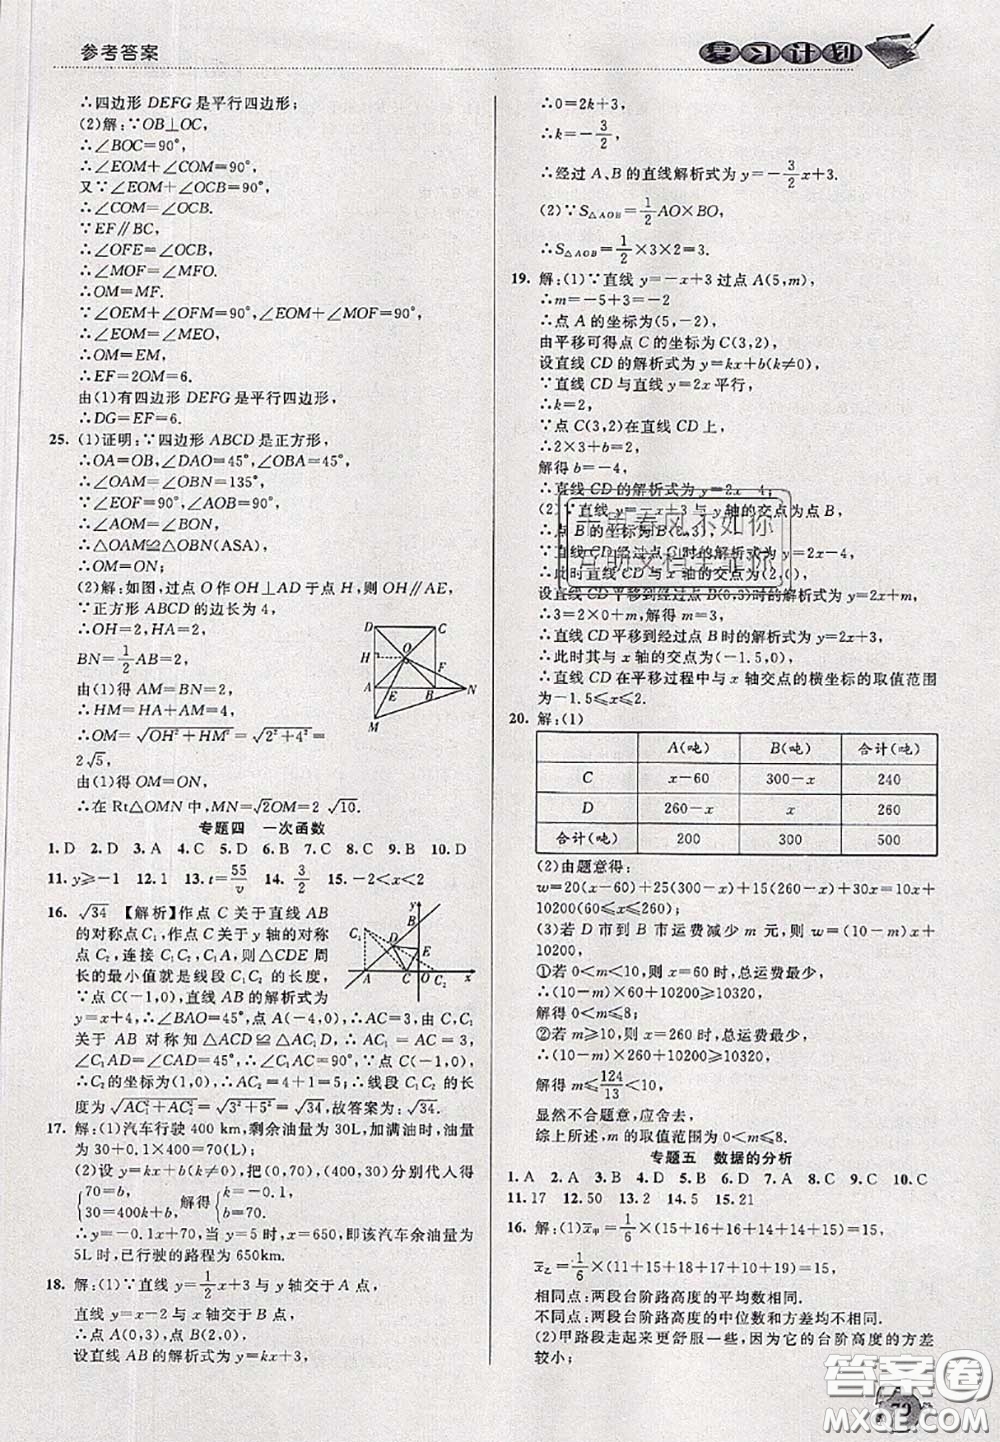 参考答案
复习计划
∴四边形 DEFG 是平行四边形;
(2)解:∵OB⊥OC,
∴∠BOC=90°,
∴∠EOM+∠COM=90°,
又∵∠EOM+∠OCB=90°,
∴∠COM=∠OCB.
∵EF∥BC,
∴∠OFE=∠OCB,
∴∠MOF=∠MFO.
∴OM=MF.
∵∠OEM+∠OFM=90°,∠EOM+∠MOF=90°,
∴∠EOM=∠MEO,
∴OM=EM,
∴EF=2OM=6.
由(1)有四边形 DEFG 是平行四边形,
∴DG=EF=6.
25. (1)证明:∵四边形 ABCD 是正方形,
∴OA=OB,∠DAO=45°,∠OBA=45°,
∴∠OAM=∠OBN=135°,
∵∠EOF=90°,∠AOB=90°,
∴∠AOM=∠BON,
∴△OAM≌△OBN(ASA),
(2)解:如图,过点 O 作 OH⊥AD 于点 H,则 OH∥AE,
∵正方形 ABCD 的边长为 4,
∴OH=2,HA=2,
BN=1/2 AB=2,
由(1)得 AM=BN=2,
∴HM=HA+AM=4,
∴OM=√(OH²+HM²)=√(2²+4²)=
2√5,
由(1)得 OM=ON,
∴在 Rt△OMN 中,MN=√2OM=2 √10.
D C H O F A E B N M
专题四 一次函数
1. D 2. D 3. A 4. C 5. D 6. B 7. C 8. B 9. C 10. D
11. y⩾-1 12. 1 13. t=55/v 14. 3/2 15. -2<x<2
16. √34 【解析】作点 C 关于直线 AB
的对称点 C₁,作点 C 关于 y 轴的对称
点 C₂,连接 C₁C₂,则△CDE 周
长的最小值就是线段 C₁C₂ 的长度,
∵点 C(-1,0),直线 AB 的解析式为
y=x+4,∴∠BAO=45°,点 A(-4,0),∴AC=3,由 C,C₁
关于 AB 对称知△ACD≌△AC₁D,∴AC₁=AC=3,
∠C₁AD=∠CAD=45°,∴∠C₁AC=90°,∵点 C(-1,0),
∴C₂ 的坐标为(1,0),∴AC₂=4+1=5,∴线段 C₁C₂ 的长
度为√(AC₁²+AC₂²)=√(3²+5²)=√34,故答案为:√34.
y B C₁ D E A C O C₂ x
17. 解:(1)汽车行驶 400 km,剩余油量为 30L,加满油时,油量
为 30+0.1×400=70(L)
(2)设 y=kx+b(k≠0),把(0,70),(400,30)分别代入得
{70=b, 30=400k+b, 解得{k=-0.1, b=70,
∴y=-0.1x+70,当 y=5 时,x=650,即该汽车余油量为
5L 时,已行驶的路程为 650km.
18. 解:(1)∵直线 y=1/2 x+3 与 y 轴交于 A 点,
直线 y=x-2 与 x 轴交于 B 点,
∴点 A(0,3),点 B(2,0),
设直线 AB 的解析式为 y=kx+3,
∴0=2k+3,
∴k=-3/2,
∴经过 A、B 的直线解析式为 y=-3/2 x+3.
(2)∵S△AOB=1/2 AO×BO,
∴S△AOB=1/2×3×2=3.
19. 解:(1)∵直线 y=-x+3 过点 A(5,m),
∴m=-5+3=-2,
∴点 A 的坐标为(5,-2),
由平移可得点 C 的坐标为 C(3,2),
设直线 CD 的解析式为 y=kx+b(k≠0),
∵直线 CD 与直线 y=2x 平行,
∴k=2,
∵点 C(3,2)在直线 CD 上,
∴2×3+b=2,
解得 b=-4,
∴直线 CD 的解析式为 y=2x-4;
(2)∵直线 y=-x+3 与 y 轴的交点为点 B,
∴点 B 的坐标为 B(0,3),
∵直线 CD 经过点 C 时的解析式为 y=2x-4,
∴此时直线 CD 与 x 轴的交点为(2,0),
设直线 CD 平移到经过点 B(0,3)时的解析式为 y=2x+m,
∴3=2×0+m,解得 m=3,
∴直线 CD 平移到经过点 B 时的解析式为 y=2x+3,
∴此时其与 x 轴的交点为(-1.5,0),
∴直线 CD 在平移过程中与 x 轴交点的横坐标的取值范围
为-1.5⩽x⩽2.
20. 解:(1)
A(吨) B(吨) 合计(吨)
C x-60 300-x 240
D 260-x x 260
合计(吨) 200 300 500
(2)由题意得:
w=20(x-60)+25(300-x)+15(260-x)+30x=10x+
10200(60⩽x⩽260);
(3)若 D 市到 B 市运费减少 m 元,则 w=(10-m)x+
10200,
①若 0<m<10,则 x=60 时,总运费最少,
∴(10-m)×60+10200⩾10320,
解得 0<m⩽8;
②若 m⩾10,则 x=260 时,总运费最少,
∴(10-m)×260+10200⩾10320,
解得 m⩽124/13<10,
显然不合题意,应舍去,
综上所述,m 的取值范围为 0<m⩽8.
专题五 数据的分析
1. A 2. A 3. B 4. D 5. B 6. D 7. D 8. C 9. C 10. C
11. 17 12. 50 13. 2 14. 5 15. 21
16. 解:(1)x̄甲=1/6×(15+16+16+14+14+15)=15,
x̄乙=1/6×(11+15+18+17+10+19)=15,
相同点:两段台阶路高度的平均数相同.
不同点:两段台阶路高度的中位数和方差均不相同.
(2)甲路段走起来更舒服一些,因为它的台阶高度的方差
较小;
答案圈
MXQE.COM